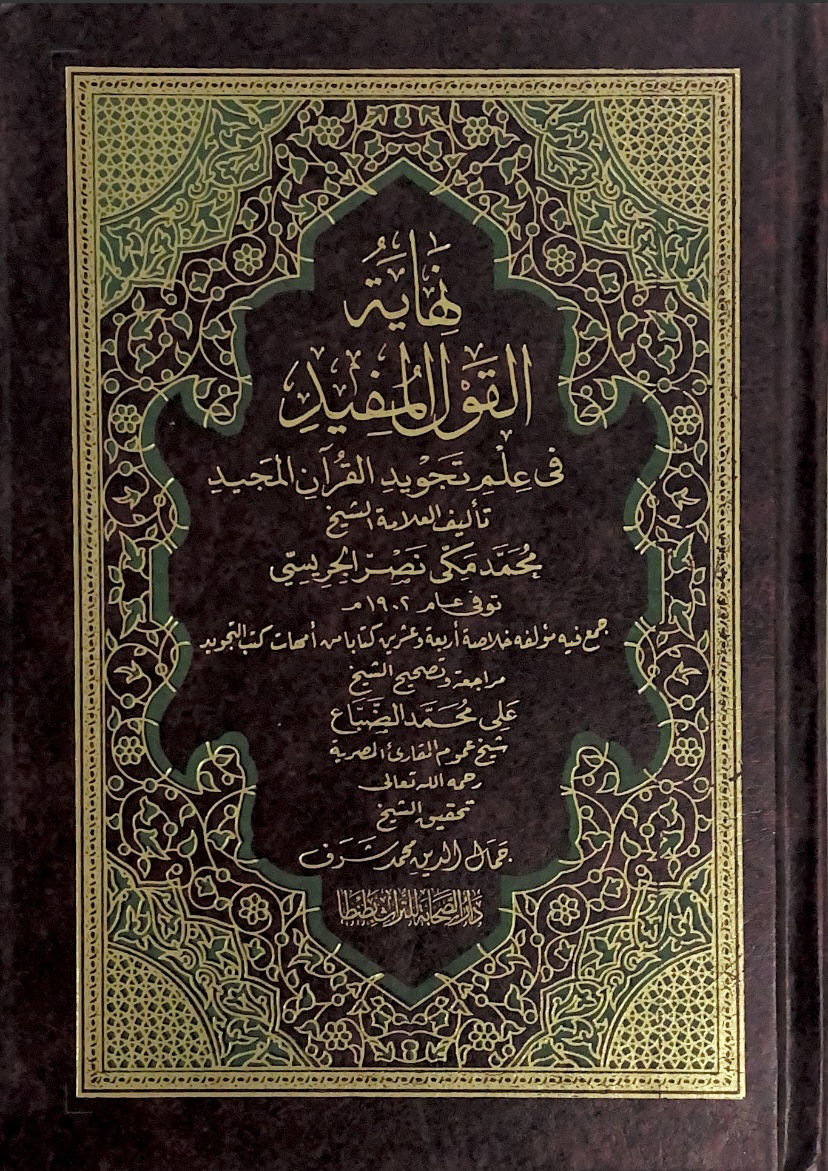 نِهَايَةُ
القَوْلِ المُفِيدِ
فى عِلْمِ تَجْوِيدِ القُرْآنِ المَجِيدِ
تأليف العلامة الشيخ
مُحَمَّد مَكِّى نَصْر الجريسِّي
توفى عام ١٩٠٢ م
جمع فيه مؤلفه خلاصة أربعة وعشرين كتابا من أمهات كتب التجويد
مراجعة وتصحيح الشيخ
عَلِى مُحَمَّد الضَّبَّاع
شيخ عموم المقارئ المصرية
رحمه الله تعالى
تحقيق الشيخ
جَمَال الدين محمد شَرَف
دار الصحابة للتراث بطنطا